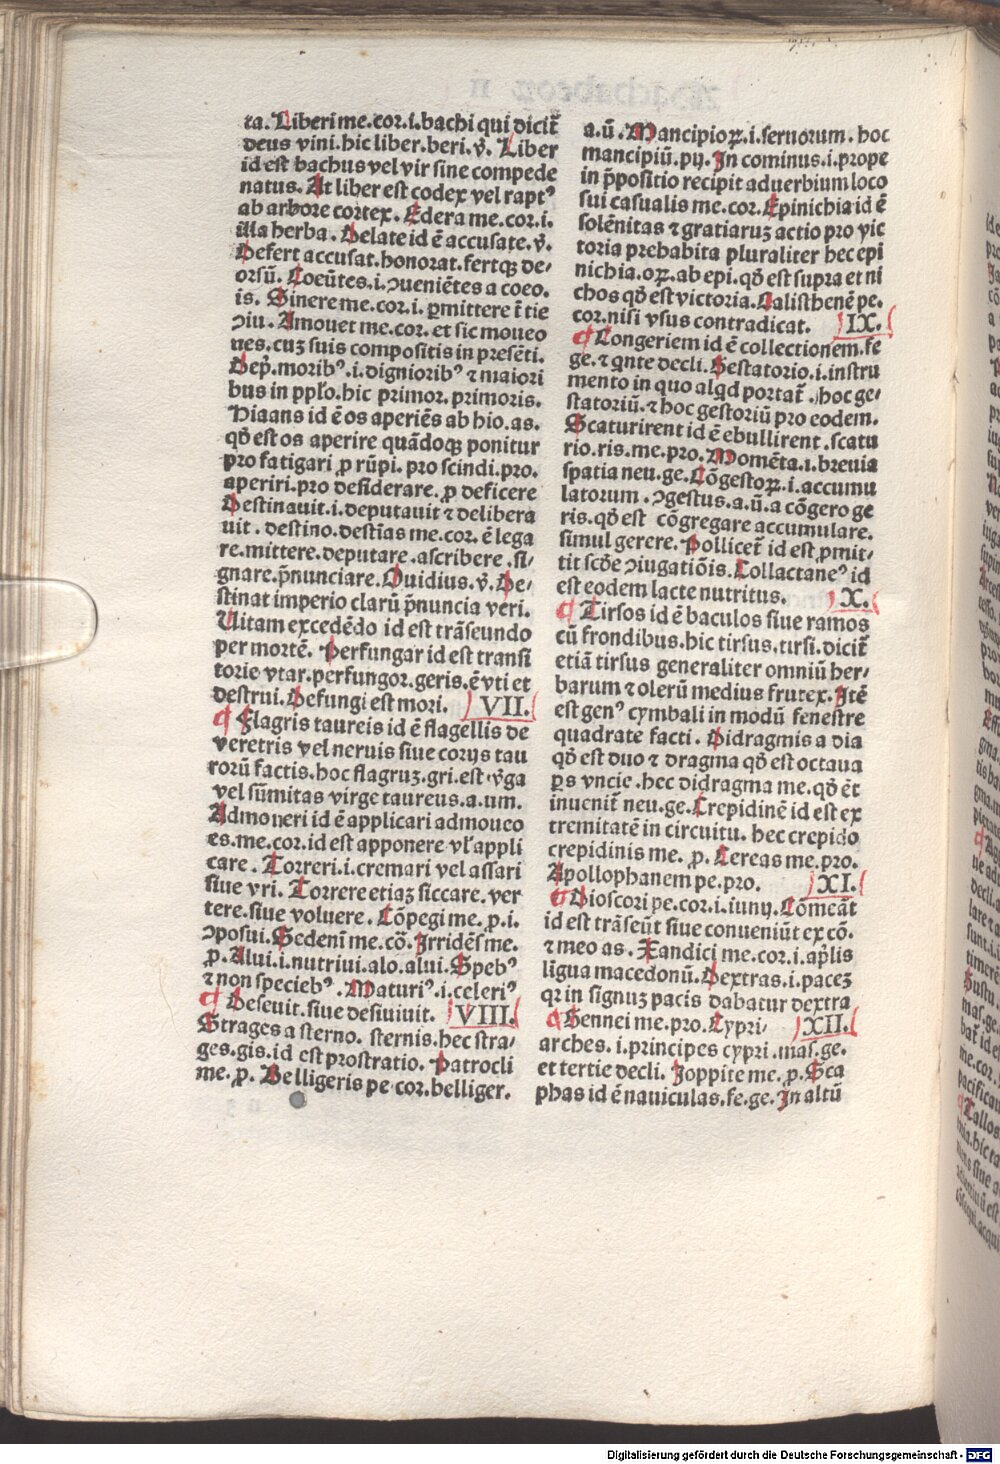 ta. Liberi me.cor.i.bachi qui dicit᷒
deus vini.hic liber.beri.v̄. Liber
id est bachus vel vir sine compede
natus. At liber est codex vel rapt⁹
ab arbore cortex. Edera me.cor.i.
illa herba. Delate id ē accusate.v̄.
Defert accusat.honorat.fertqꝫ de⸗
orsū. Coeūtes.i.ꝯueniētes a coeo.
is. Sinere me.cor.i.ꝑmittere t̄ tie
ꝯiu. Amouet me.cor.et sic moueo
ues.cuꝫ suis compositis in presēti.
moribꝰ.i.dignioribꝰ ⁊ maiori
bus in hic primor. primoris.
Hiaans id ē os aperiēs ab hio.as.
qđ est os aperire quādoqꝫ ponitur
pro fatigari ꝓ rūpi. pro scindi.pro.
aperiri.pro desiderare.ꝓ deficere
Destinauit.i.deputauit ⁊ delibera
uit. destino.destīas me.cor.ē lega
re.mittere.deputare.ascribere.si⸗
gnare.p̄nunciare.Ouidius.v̄.De⸗
stinat imperio clarū p̄nuncia veri.
Uitam excedēdo id est trāseundo
per mortē. Perfungar id est transi
torie vtar.perfungor.geris.ē vti et
destrui.Defungi est mori. VII.
¶ Flagris taureis id ē flagellis de
veretris vel neruis siue corijs tau
rorū factis.hoc flagruꝫ.gri.est v̓ga
vel sūmitas virge taureus.a.um.
Admoneri id ē applicari admoueo
es.me.cor.id est apponere vl̓ appli
care. Torreri.i.cremari vel assari
siue vri. Torrere etiaꝫ siccare.ver
tere.siue voluere. Cōpegi me.ꝓ.i.
ꝯposui.Sedenī me.cō.Irridēs me.
ꝓ.Alui.i.nutriui.alo.alui.Spebꝰ
⁊ non speciebꝰ. Maturiꝰ.i.celeriꝰ
¶ Deseuit.siue desiuiuit. VIII.
Strages a sterno. sternis.hec stra⸗
ges.gis.id est prostratio. Patrocli
me.ꝓ. Belligeris pe cor.belliger.
a.ū. Mancipioꝝ.i.seruorum. hoc
mancipiū.pij.In cominus.i.prope
in p̄positio recipit aduerbium loco
sui casualis me.cor.Epinichia id ē
solēnitas ⁊ gratiaruꝫ actio pro vic
toria prehabita pluraliter hec epi
nichia.oꝝ.ab epi.qđ est supra et ni
chos qđ est victoria.Calisthenē pe.
cor.nisi vsus contradicat. IX.
¶ Congeriem id ē collectionem.fe
ge.⁊ qnte decli.Gestatorio.i.instru
mento in quo alqd portat᷒.hoc ge⸗
statoriū.⁊ hoc gestoriū pro eodem.
Scaturirent id ē ebullirent.scatu
rio.ris.me.pro.Momēta.i.breuia
spatia neu.ge.Cōgestoꝝ.i.accumu
latorum. ꝯgestus.a.ū.a cōgero ge
ris.qđ est cōgregare accumulare.
simul gerere. Pollicet᷒ id est ꝓmit⸗
tit ꝯiugatiōis.Collactaneꝰ id
est eodem lacte nutritus. X.
¶ Tirsos id ē baculos siue ramos
cū frondibus.hic tirsus.tirsi.dicit᷒
etiā tirsus generaliter omniū her⸗
barum ⁊ olerū medius frutex.Itē
est genꝰ cymbali in modū fenestre
quadrate facti. Didragmis a dia
qđ est duo ⁊ dragma qđ est octaua
ꝑs vncie.hec didragma me.qđ ēt
inuenit᷒ neu.ge.Crepidinē id est ex
tremitatē in circuitu. hec crepido
crepidinis me. ꝓ. Cereas me.pro.
Apollophanem pe.pro. XI.
¶ Dioscori pe.cor.i.iunij.Cōmeāt
id est trāseūt siue conueniūt ex cō.
⁊ meo as. Xandici me.cor.i.ap̓lis
ligua macedonū.Dextras.i.paceꝫ
qꝛ in signuꝫ pacis dabatur dextra
¶ Gennei me.pro.Cypri⸗ XII.
arches. i.principes cypri.mas.ge.
et tertie decli. Joppite me. ꝓ.Sca
phas id ē nauiculas.fe.ge.In altū
Digitalisierung gefördert durch die Deutsche Forschungsgemeinschaft - DFG